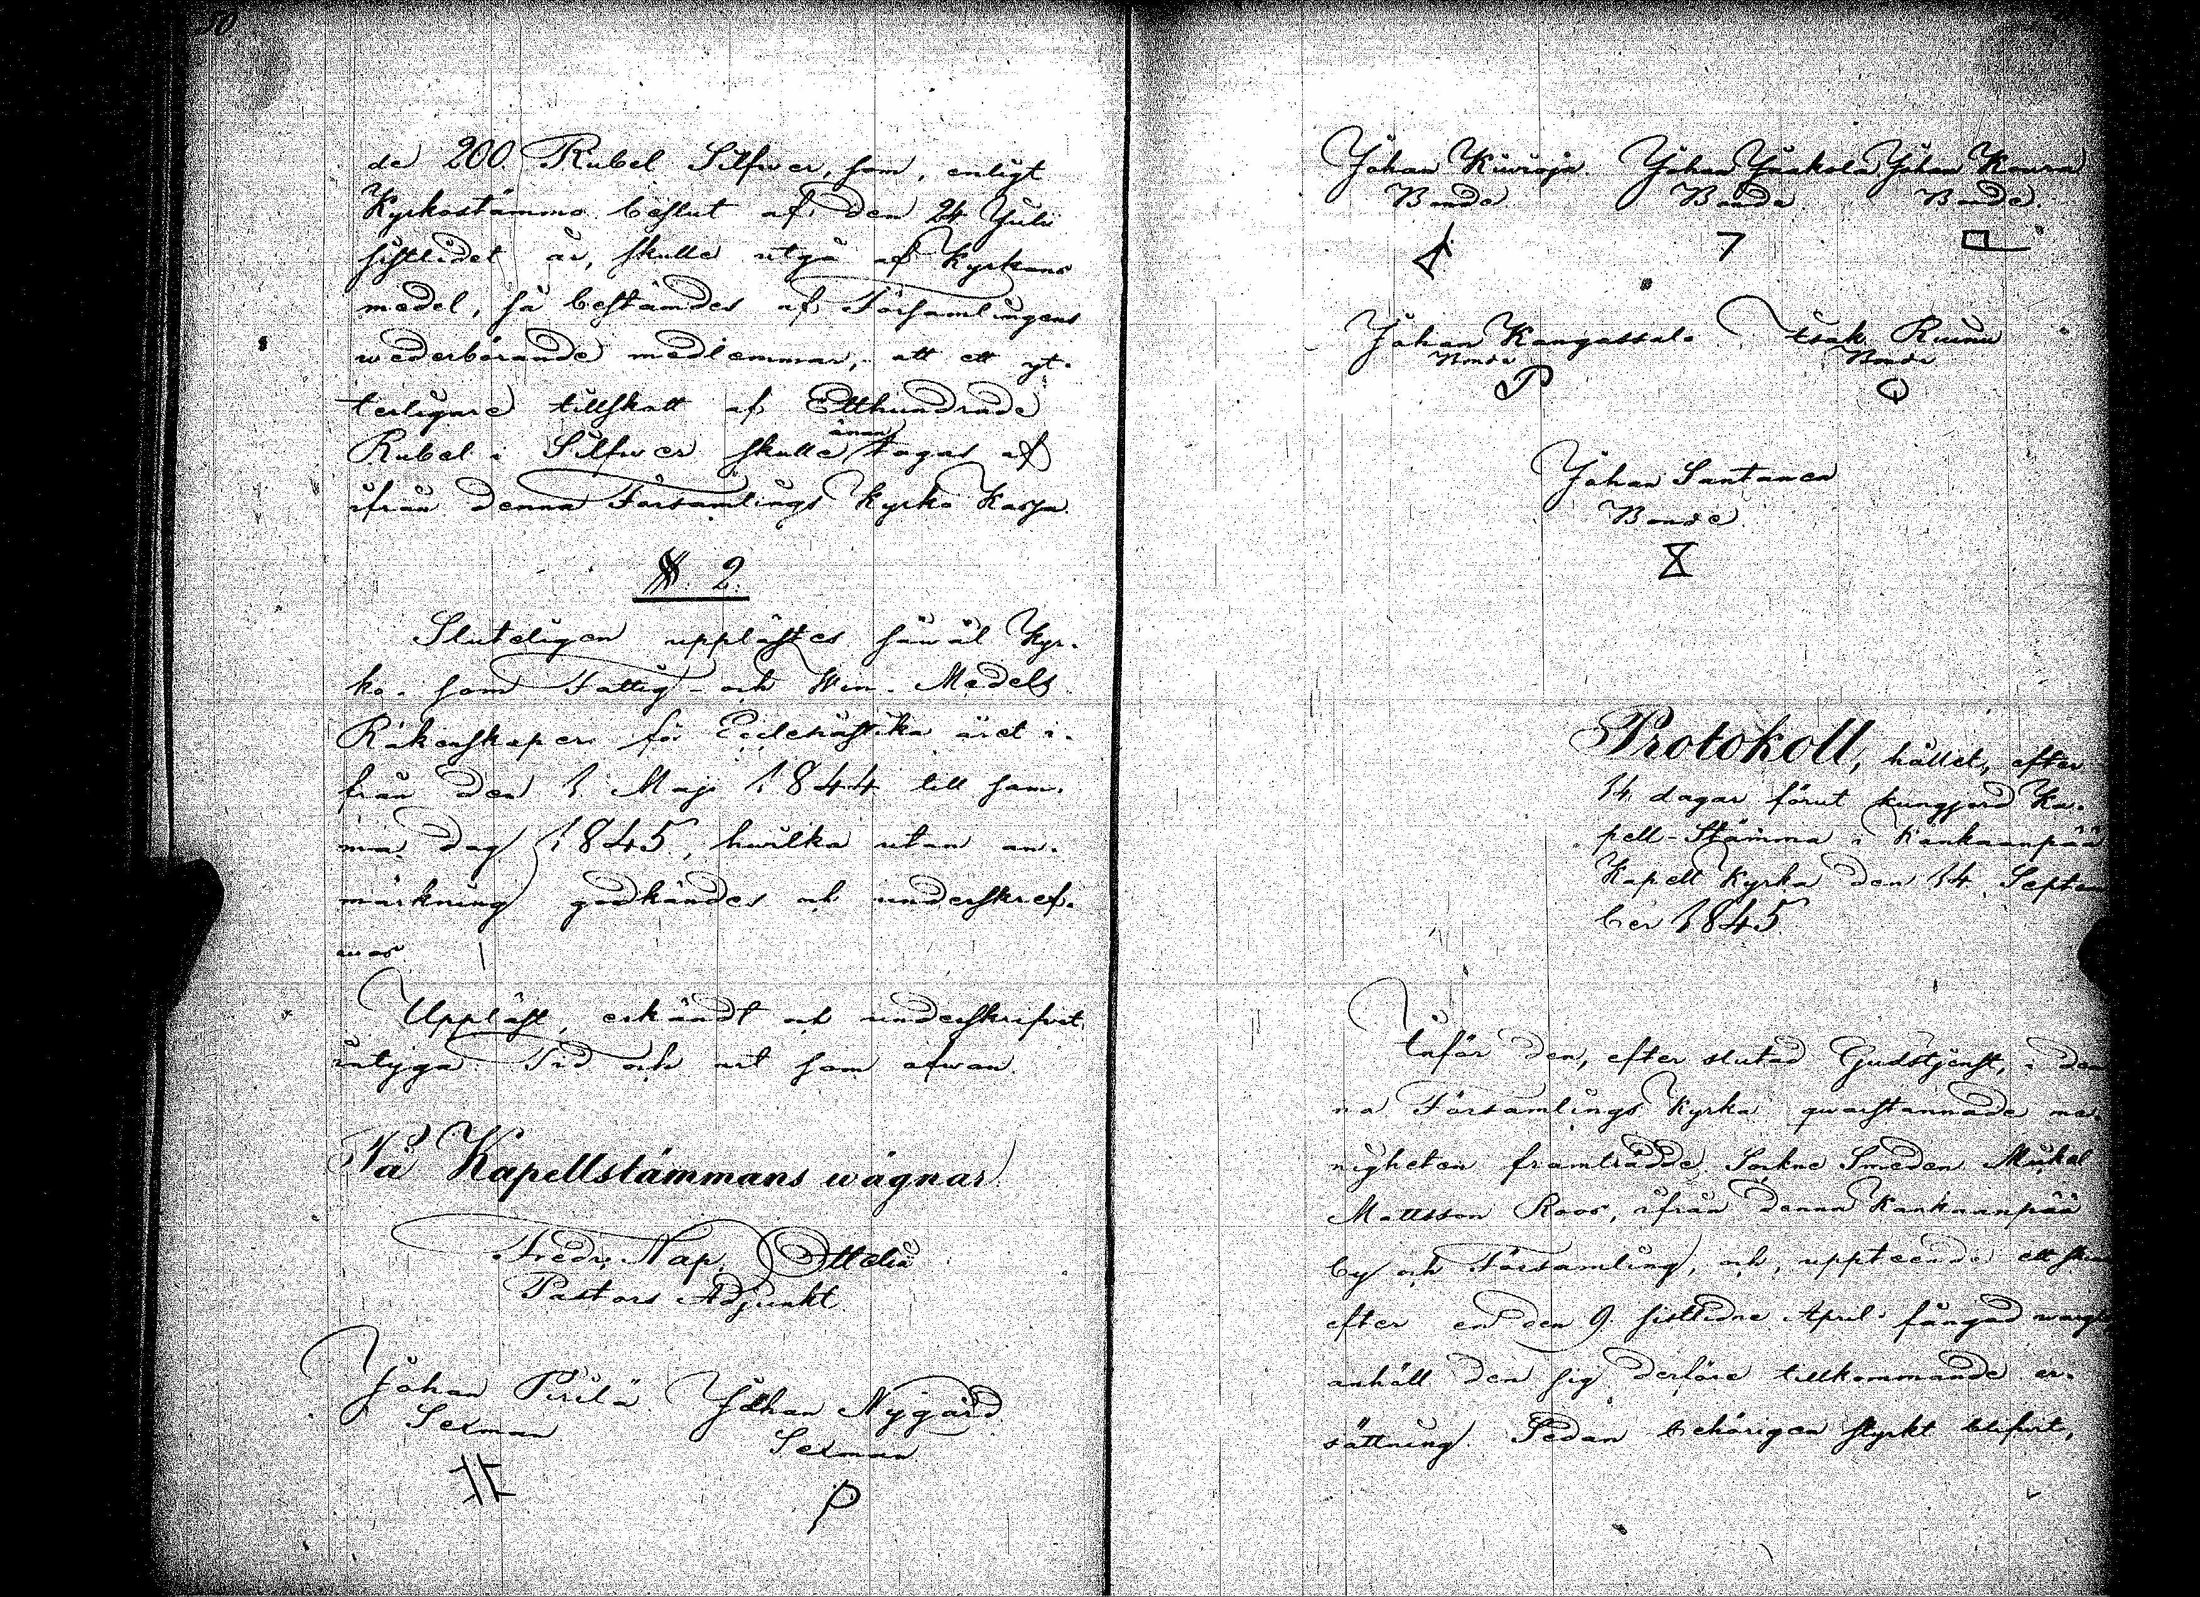 50
de 200. Rubel Silfwer, som, enligt
Kyrkostämmo beslut af den 24 Juli
sistlidet år, skulle utgå af Kyrkans
medel, så bestämdes af Församlingens
wederbörande medlemmar, att ett yt-
terligare tillskott af Etthundrade
Rubel i Silfwer skulle ännu tagas af
ifrån denna Församlings Kyrko Kassa.
§. 2.
Sluteligen upplästes såwäl Kyr-
ko- som Fattig- och Win- Medels
Räkenskaper för Ecclesiastika året i-
från den 1 Maji 1844 till sam-
ma dag 1845, hwilka utan an-
märkning godkändes och underskref-
wos.
Uppläst, erkändt och underskrifvet,
intyga Tid och ort som ofwan.
På Kapellstämmans wägnar
Fredr. Nap. Ottelin
Pastors Adjunkt.
Johan Pirilä Johan Nygård
Sexman
Sexman
P
Johan Kiwioja. Johan Jaakola Johan Koura
Bonde Bonde Bonde.
7
Johan Kangassalo Isak Ruinu
Bonde Bonde
P
Johan Santanen
Bonde
Protokoll, hållet, efter
14 dagar förut kungjord Ka-
pell-Stämma i Kankaanpää
Kapell Kyrka den 14 Septem
ber 1845.
Inför den, efter slutad Gudstjenst, i den
na Församlings Kyrka qwarstannade me-
nigheten framträdde Sockne Smeden Mickel
Mattsson Roos, ifrån denna Kankaanpää
by och Församling, och, uppteende ett skin
efter en den 9. sistlidne April fångad warg
anhöll den sig derföre tillkommande er-
sättning. Sedan behörigen styrkt blifvit,